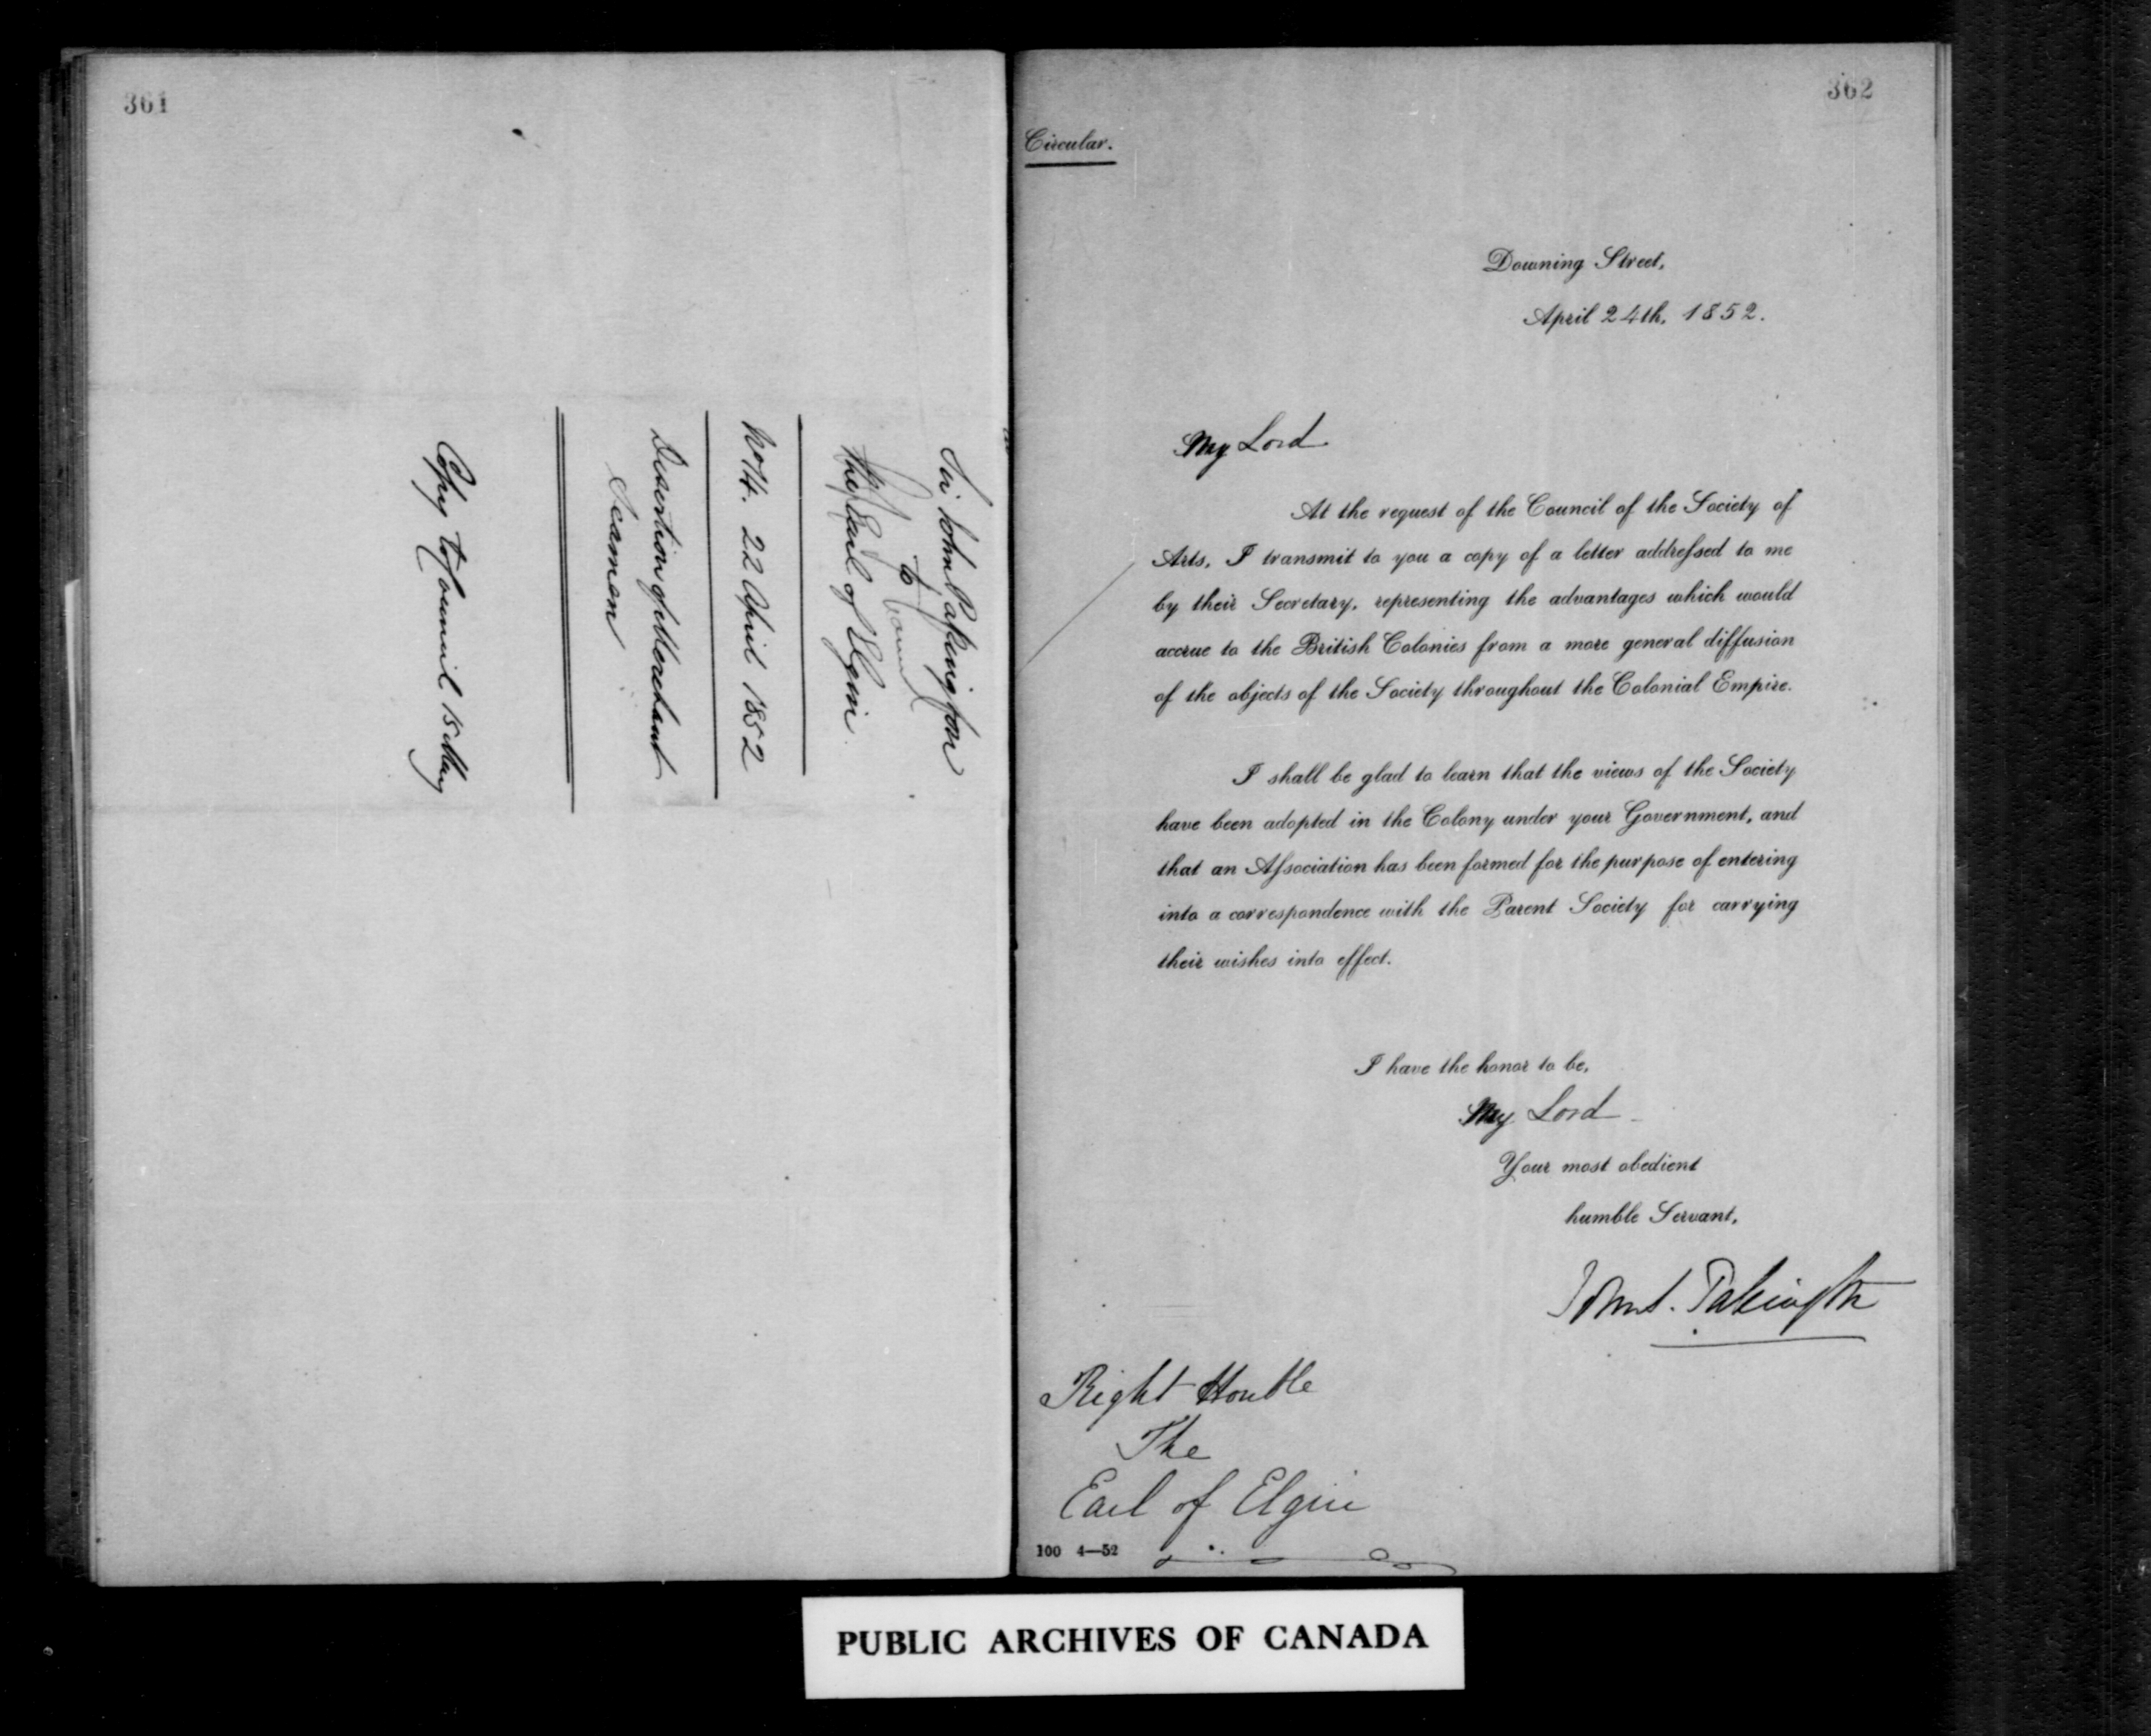 361
Sir John Pakington
to
The Earl of Elgin
No 14. 22 April 1852
Desertion of Merchant
Seamen
Copy to Council 15 May
362
Circular.
Downing Street,
April 24th, 1852.
My Lord
At the request of the Council of the Society of
Arts, I transmit to you a copy of a letter addreſsed to me
by their Secretary, representing the advantages which would
accrue to the British Colonies from a more general diffusion
of the objects of the Society throughout the Colonial Empire.
I shall be glad to learn that the views of the Society
have been adopted in the Colony under your Government, and
that an Aſsociation has been formed for the purpose of entering
into a correspondence with the Parent Society for carrying
their wishes into effect.
I have the honor to be,
My Lord
Your most obedient
humble Servant,
John S. Pakington
Right Honble
The
Earl of Elgin
100 4—52
PUBLIC ARCHIVES OF CANADA